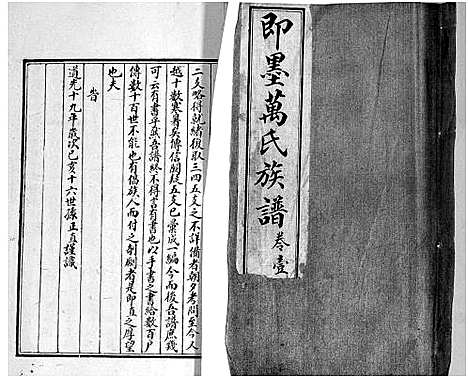 即墨萬氏族譜 卷壹
二支略得就緒復取三四五支之不詳備者朝夕考問至今人
越十數寒暑矣傳信闕疑五支已彙成一編今而後吾譜庶幾
可云有書乎然吾譜終不得言有書也以手書之書給數百戶
傳數十百世不能也有倡族人而付之剞劂者是即直之厚望
也夫
旹
道光十九年歲次己亥十六世孫正直謹識